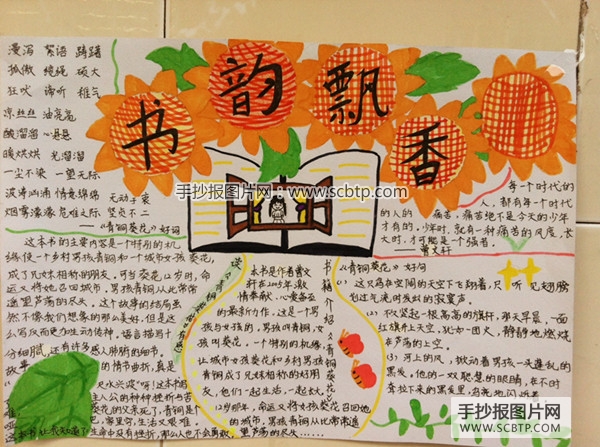 书韵飘香
漫泻 絮语 踌躇
孤傲 缆绳 硕大
狂吠 谛听 稚气
凉丝丝 油亮亮
酸溜溜 心悬悬
暖烘烘 光溜溜
一尘不染 一望无际
波涛汹涌 情意绵绵 无动于衷
烟雾濛濛 危难之际 坚贞不二
——《青铜葵花》好词
手抄报图片网：www.scbtp.com
每个时代的
人，都有每个时代
的人的 痛苦，痛苦绝不是今天的少年
才有的。少年时，就有一种痛苦的风度，长
大时，才可能是一个强者。
——曹文轩
这本书的主要内容是个特别的机
缘，使一乡村男孩青铜和一个城市女孩葵花，
成了兄妹相称的朋友。可当葵花12岁时，命
运又将她召回城市，男孩青铜从此常常
遥望芦荡的尽头。这个故事的结局虽
然不像我们想象的那么美好，但是这
么写反而更加生动传神，语言描写十
分细腻，还有许多感人肺腑的细节。
故事
的情节曲折，真是
本书是作者曹文
轩在2005年激
情奉献、心爱备至
的最新力作。这是一个男
孩与女孩的，男孩叫青铜，女
孩叫葵花。一个特别的机缘，
让城市女孩葵花和乡村男孩
青铜成了兄妹相称的好朋
友，他们一起生活，一起长大。
12岁那年，命运又将女孩葵花召回她
的城市，男孩青铜从此常常遥
望芦荡的尽头……
书籍介绍《青铜葵花》
《青铜葵花》好句
(1) 这只鸟在空阔的天空下飞翔着，只听见翅膀
划过气流时发出的寂寞声。
(2) 不久竖起一根高高的旗杆，那天早晨，一面
红旗升上天空，犹如一团火，静静地燃烧
在芦荡的上空。
(3) 河上的风，掀动着男孩一头蓬乱的
黑发，他的一双聪慧的眼睛，在不时
耷拉下来的黑发里，乌亮地闪着
手抄报图片网
WWW.SCBTP.COM